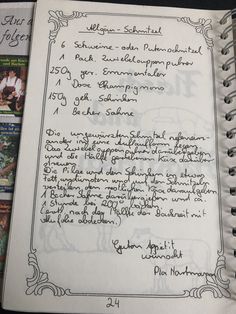 Allgäu-Schnitzel
6 Schweine- oder Putenschnitzel
1 Pack. Zwiebelsuppenpulver
250g ger. Emmentaler
1 Dose Champignons
150g gek. Schinken
1 Becher Sahne
Die ungewürzten Schnitzel nebenein-
ander in eine Auflaufform legen.
Das Zwiebelsuppenpulver darüberstreuen
und die Hälfte geriebenen Käse darüber
streuen.
Die Pilze und den Schinken in etwas
Fett andünsten und auf den Schnitzeln
verteilen, den restlichen Käse darübergeben
1 Becher Sahne darübergießen und ca.
1 Stunde bei 200 backen
(evtl. nach der Hälfte der Backzeit mit
Alufolie abdecken.)
Guten Appetit
wünscht
Pia Hartmann
24
folgen